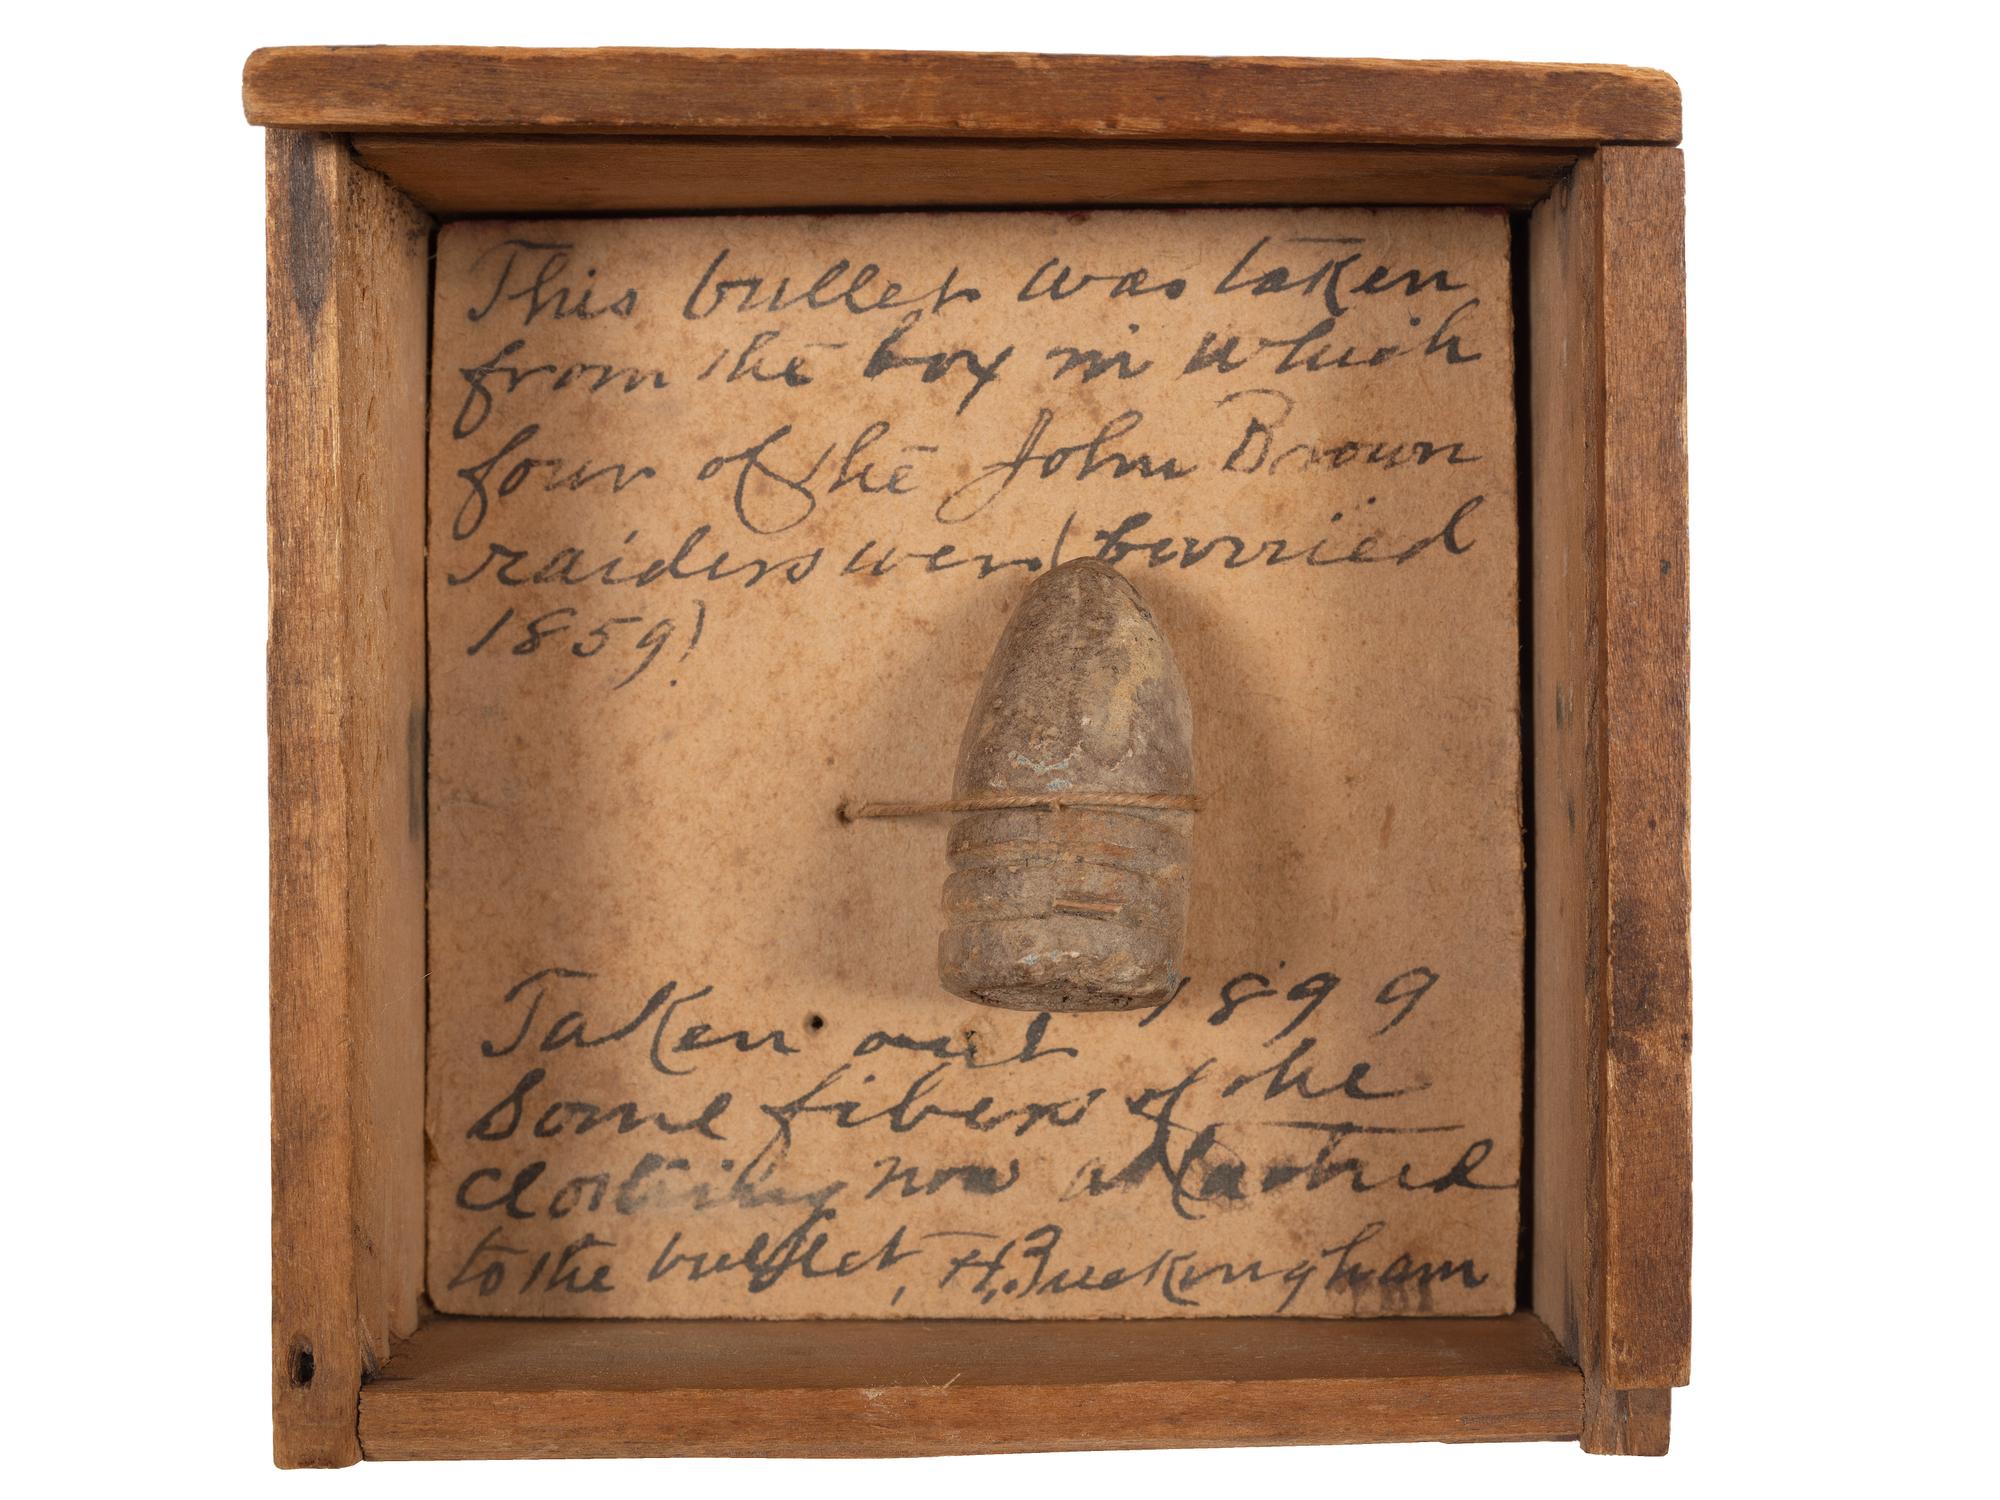 This bullet was taken
from the box in which
four of the John Brown
raiders were burried
1859!
Taken out 1899
Some fibers of the
clothing now attached
to the bullet, H.Buckingham